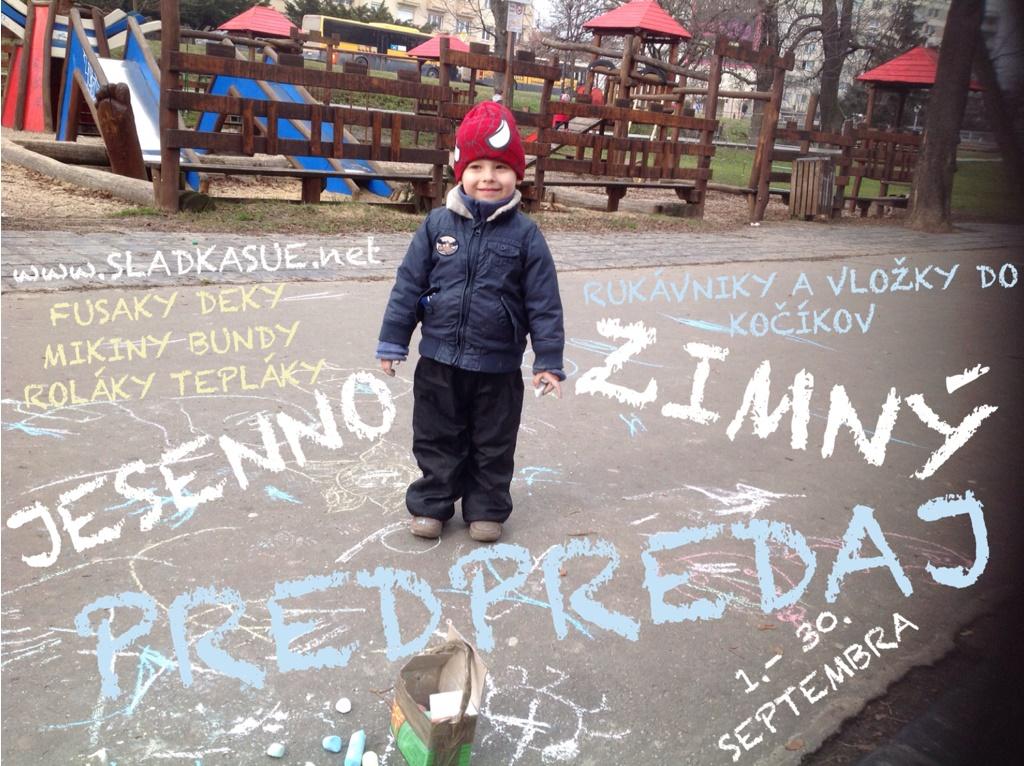 www.SLADKASUE.net
FUSAKY DEKY
MIKINY BUNDY
ROLÁKY TEPLÁKY
RUKÁVNIKY A VLOŽKY DO
KOČÍKOV
JESENNO ZIMNÝ
PREDPREDAJ
1.- 30.
SEPTEMBRA